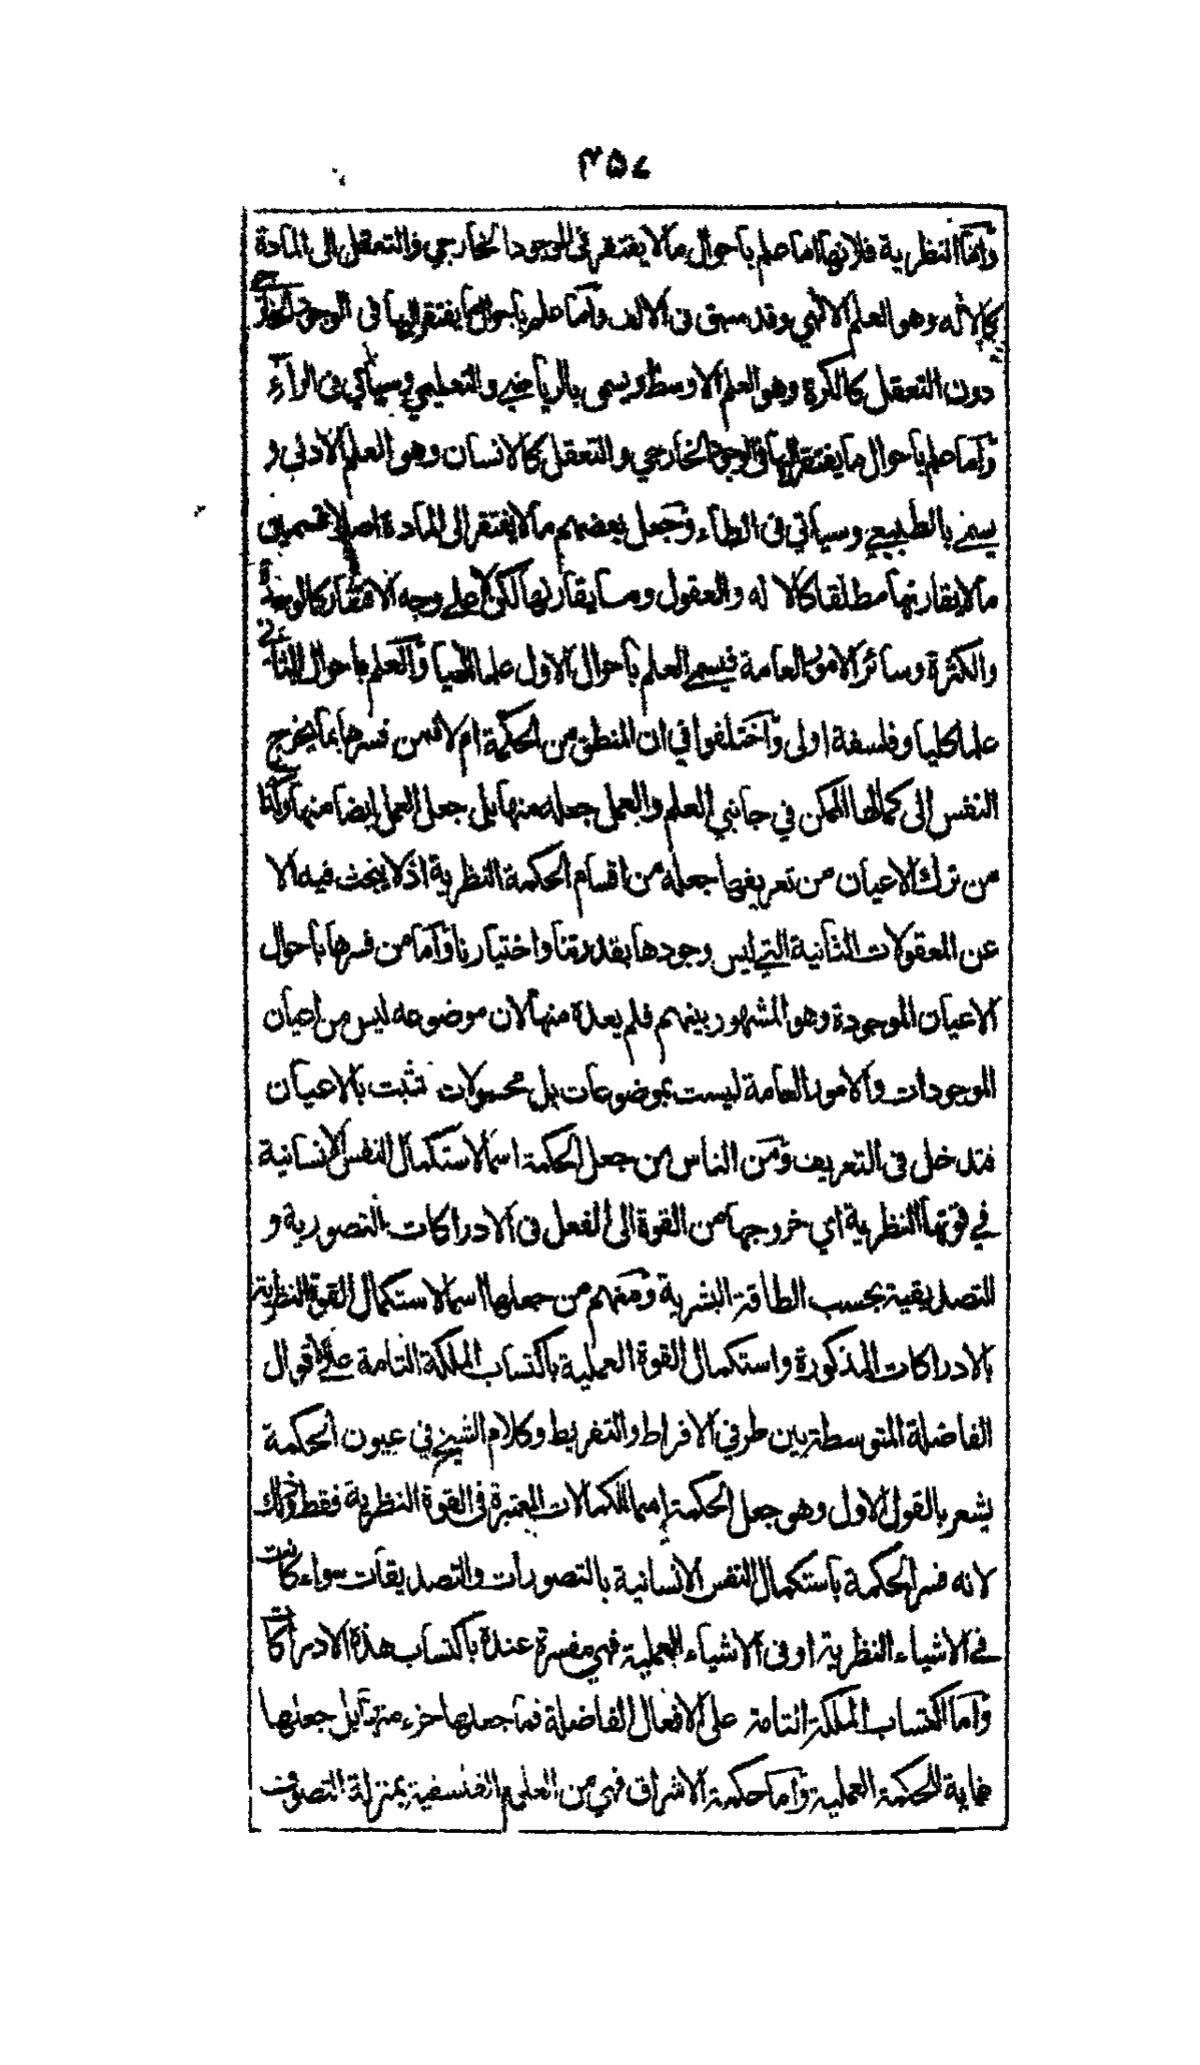 ٣٥٧
وأما النظرية فلانها اما علم باحوال ما لا يفتقر فى الوجود الخارجي والتعقل الى المادة
كالاله وهو العلم الالهي وقد سبق فى الالف وأما علم باحوال ما يفتقر اليها فى الوجود الخارجي
دون التعقل كالكرة وهو العلم الاوسط ويسمى بالرياضي والتعليمي وسيأتي فى الراء
وأما علم باحوال ما يفتقر اليها فى الوجود الخارجي والتعقل كالانسان وهو العلم الادنى و
يسمى بالطبيعي وسيأتي فى الطاء وجعل بعضهم ما لا يفتقر الى المادة اصلا قسمين
ما لا يقارنها مطلقا كالاله والعقول وما يقارنها لكن لا على وجه الافتقار كالوحدة
والكثرة وسائر الامور العامة فيسمى العلم باحوال الاول علما الهيا والعلم باحوال الثاني
علما كليا وفلسفة اولى واختلفوا في ان المنطق من الحكمة ام لا فمن فسرها بما يخرج
النفس الى كمالها الممكن في جانبي العلم والعمل جعله منها بل جعل العمل ايضا منها وكذا
من ترك الاعيان من تعريفها جعله من اقسام الحكمة النظرية اذ لا يبحث فيه الا
عن المعقولات الثانية التي ليس وجودها بقدرتنا واختيارنا وأما من فسرها باحوال
الاعيان الموجودة وهو المشهور بينهم فلم يعده منها لان موضوعه ليس من اعيان
الموجودات والامور العامة ليست بموضوعات بل محمولات تثبت بالاعيان
فتدخل فى التعريف ومن الناس من جعل الحكمة اسما لاستكمال النفس الانسانية
في قوتها النظرية اي خروجها من القوة الى الفعل فى الادراكات التصورية و
التصديقية بحسب الطاقة البشرية ومنهم من جعلها اسما لاستكمال القوة النظرية
بالادراكات المذكورة واستكمال القوة العملية باكتساب الملكة التامة على الاقوال
الفاضلة المتوسطة بين طرفي الافراط والتفريط وكلام الشيخ في عيون الحكمة
يشعر بالقول الاول وهو جعل الحكمة اسما للكمالات المعتبرة فى القوة النظرية فقط وذلك
لانه فسر الحكمة باستكمال النفس الانسانية بالتصورات والتصديقات سواء كانت
فى الاشياء النظرية او فى الاشياء العملية فهي مفسرة عنده باكتساب هذه الادراكات
وأما اكتساب الملكة التامة على الافعال الفاضلة فما جعلها جزء منها بل جعلها
غاية للحكمة العملية وأما حكمة الاشراق فهي من العلوم الفلسفية بمنزلة التصوف